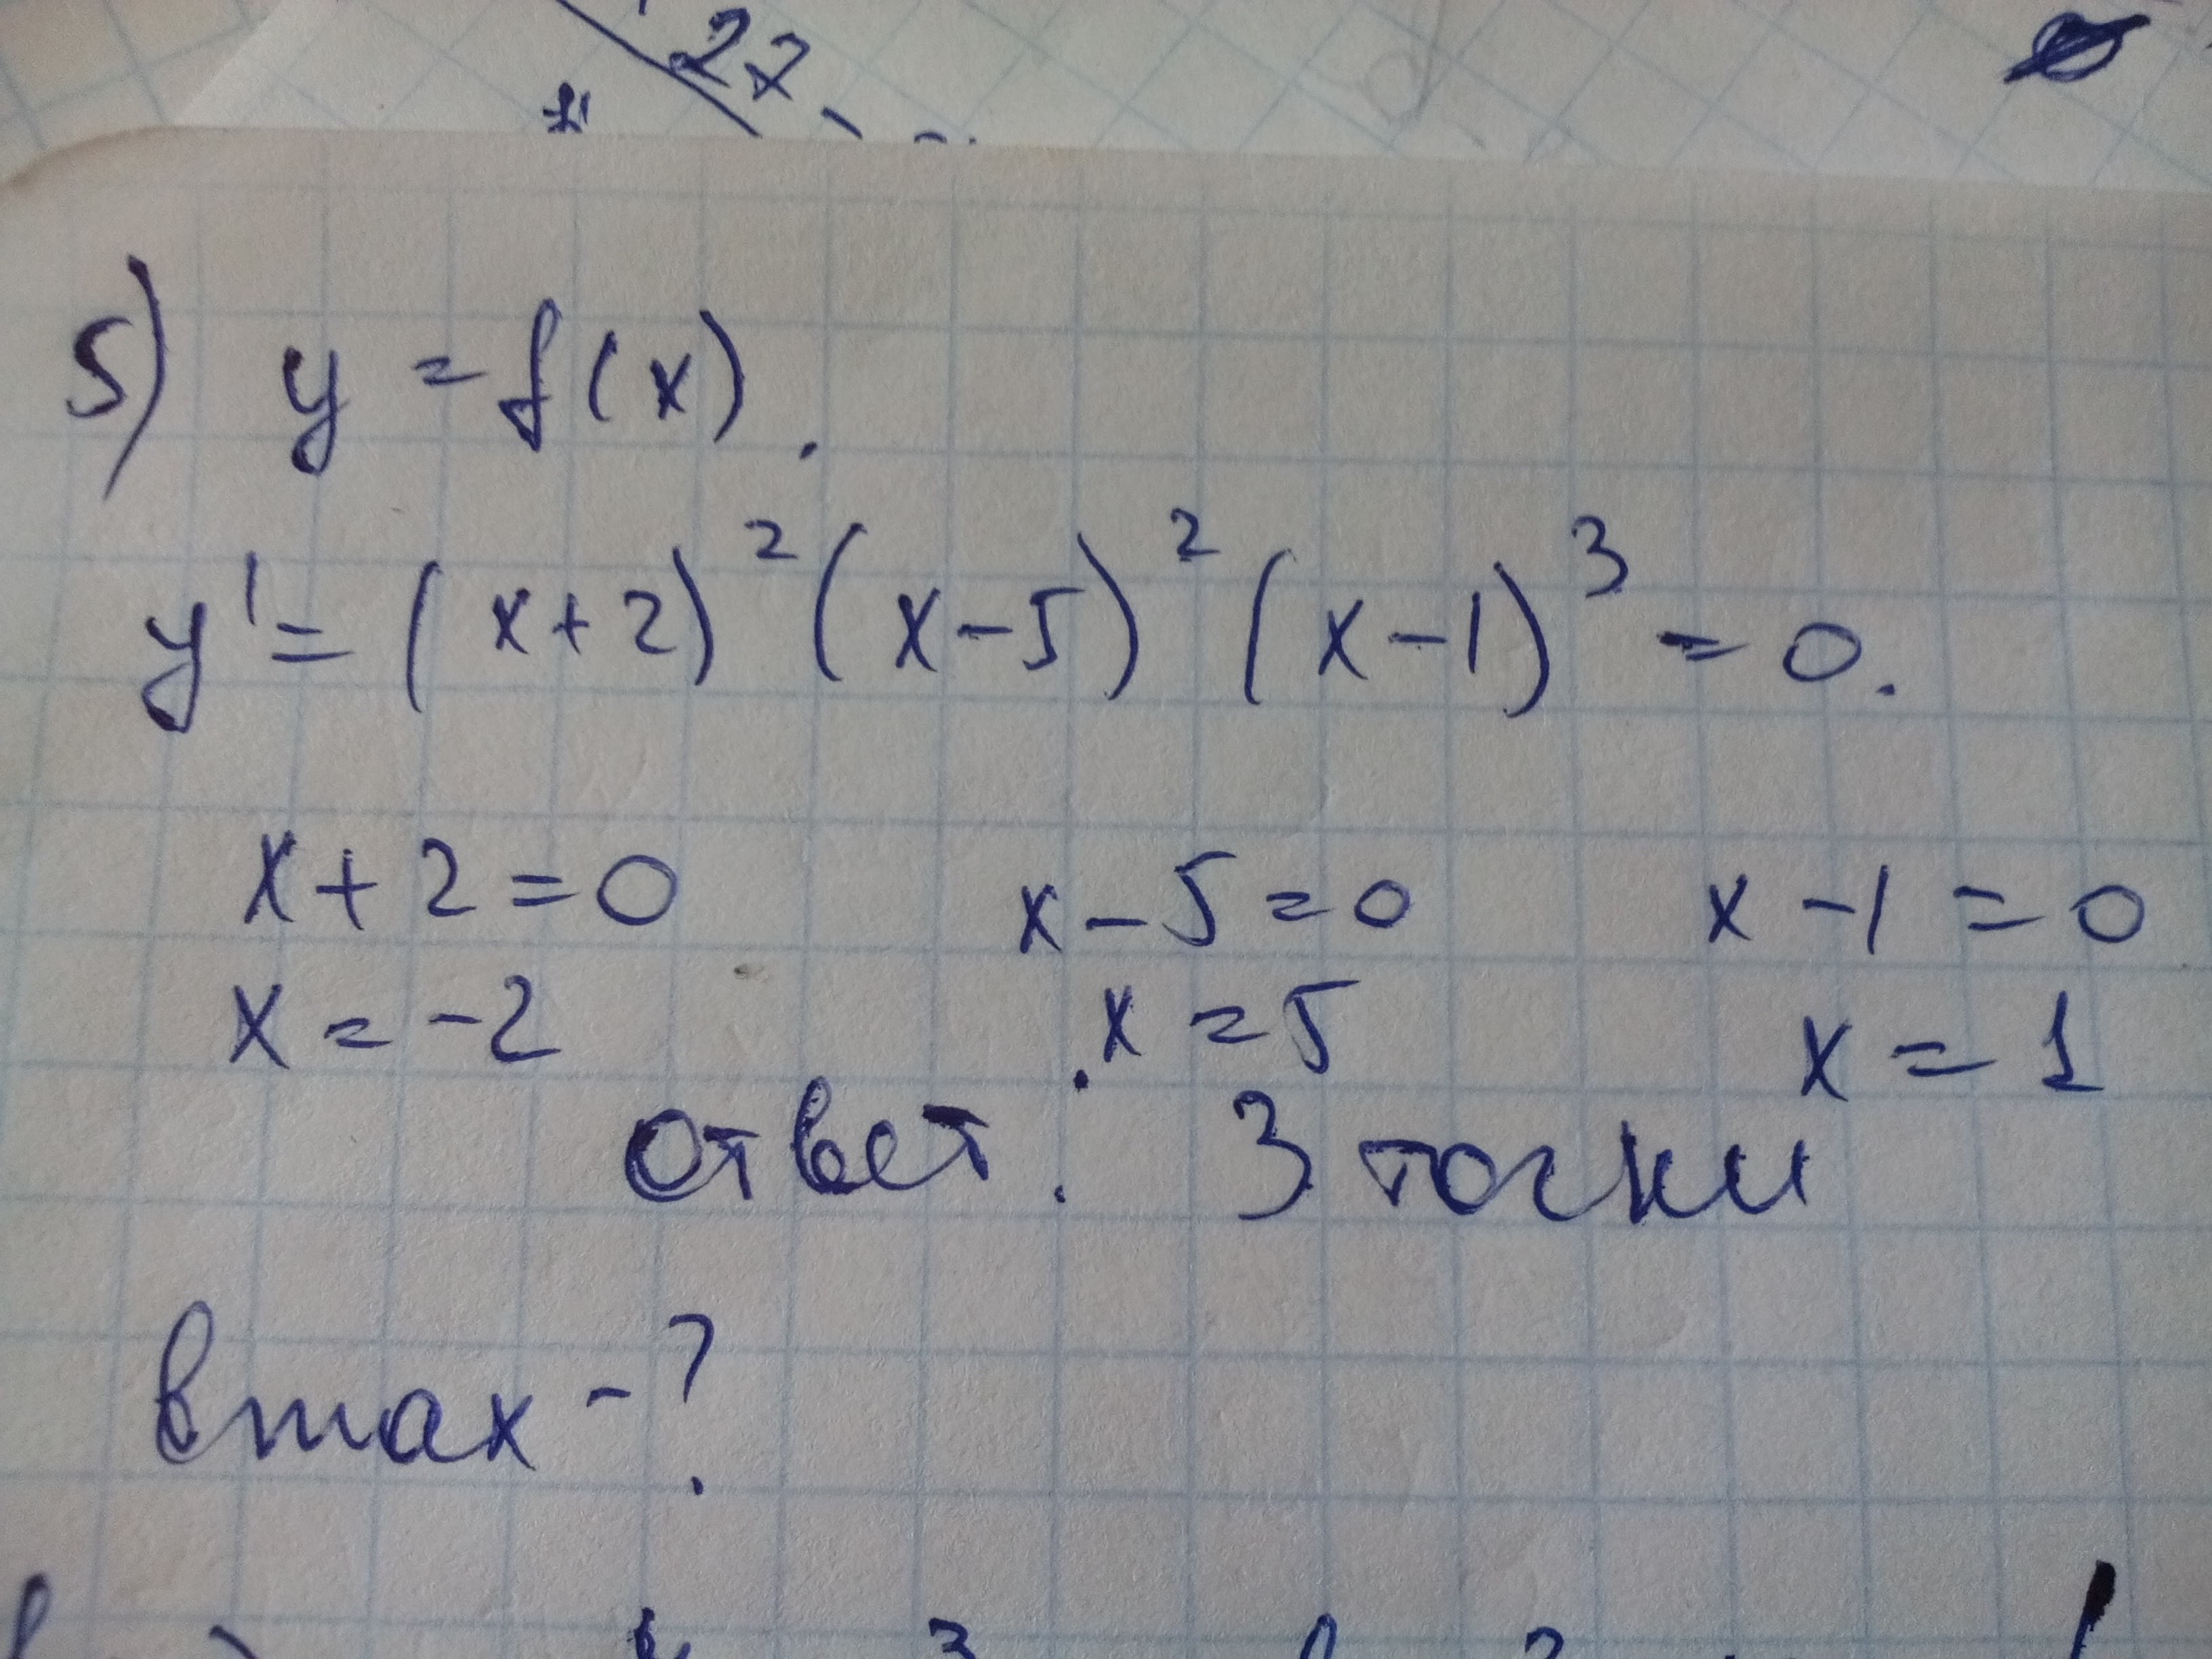 27
5) y = f(x).
y' = (x+2)² (x-5)² (x-1)³ = 0.
x+2=0 x-5=0 x-1=0
x=-2 x=5 x=1
ответ: 3 точки
в max - ?